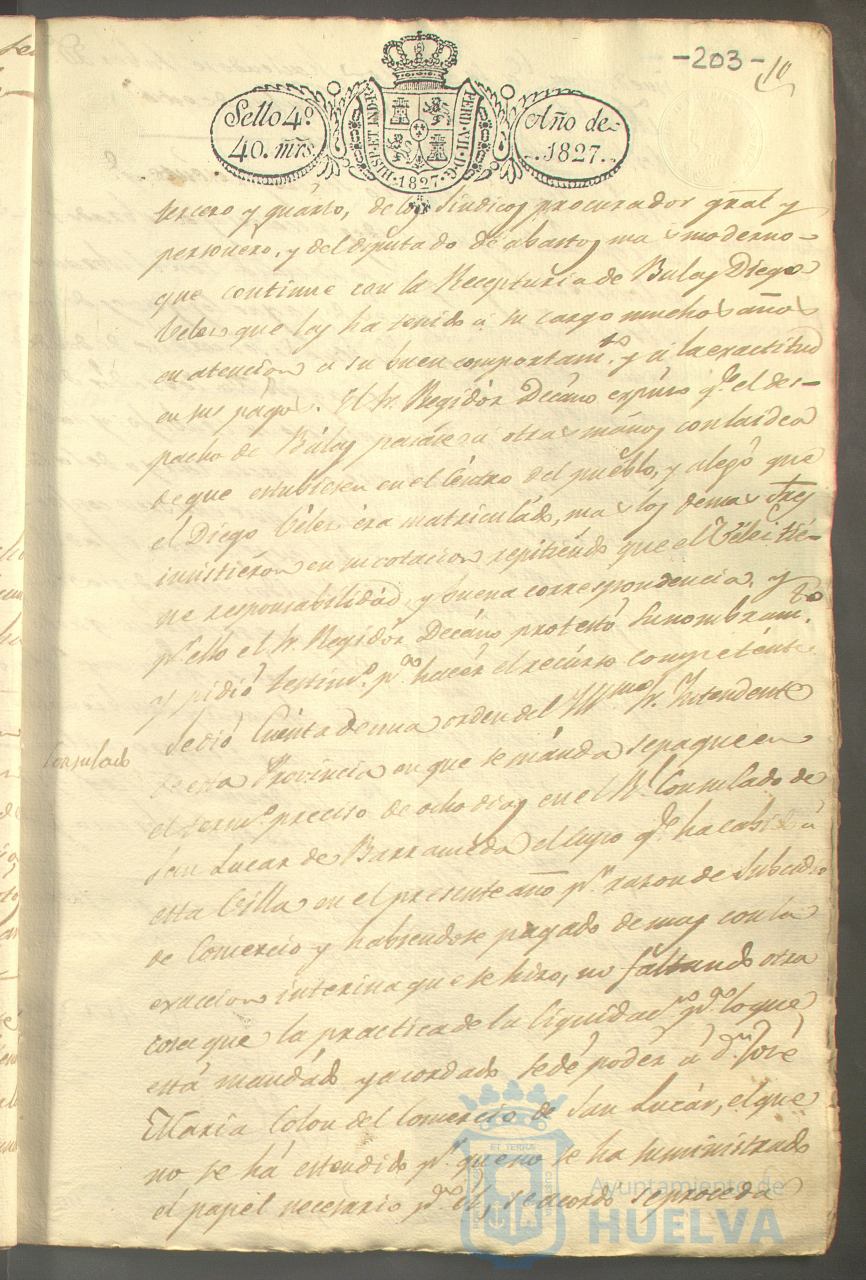 -203-
10
Sello 4º
40. mrs.
HISP. ET IND. R.
FERD. VII. D. G.
1827
Año de
1827.
tercero y quarto, de los Sindicos procurador gral y
personero, y del diputado de abastos mas moderno
que continue con la Recepturia de Bulas Diego
Velez que las ha tenido a su cargo muchos años
en atencion a su buen comportamto. y a la exactitud
en sus pagos. El Sr. Regidor Decano expuso qe. el des-
pacho de Bulas pasase a otras manos con la idea
de que estubiesen en el Centro del pueblo, y alegó que
el Diego Velez era matriculado, mas los demas Sres
insistieron en su votacion repitiendo que el Velez tie-
ne responsabilidad, y buena correspondencia, y
pr. ello el Sr. Regidor Decano protestó su nombramto.
y pidió testimo. pa. hacer el recurso competente
Consulado
Se dió Cuenta de una orden del Yllmo Sr. Yntendente
de esta Provincia en que se manda se pague en
el termo. preciso de ocho dias en el Rl. Consulado de
San Lucar de Barrameda el cupo qe. ha cabido á
esta Villa en el presente año pr. razon de Subcidio
de Comercio y habiendose pagado de mas con la
exaccion interina que se hizo, no faltando otra
cosa que la practica de la liquidacon. pa. lo que
está mandado y acordado se dé poder á dn. José
Maria Colon del Comercio de San Lucar, el que
no se há estendido pr. que no se ha suministrado
el papel necesario pa. él, se acordó se proceda
ET TERRAE
Ayuntamiento de
HUELVA